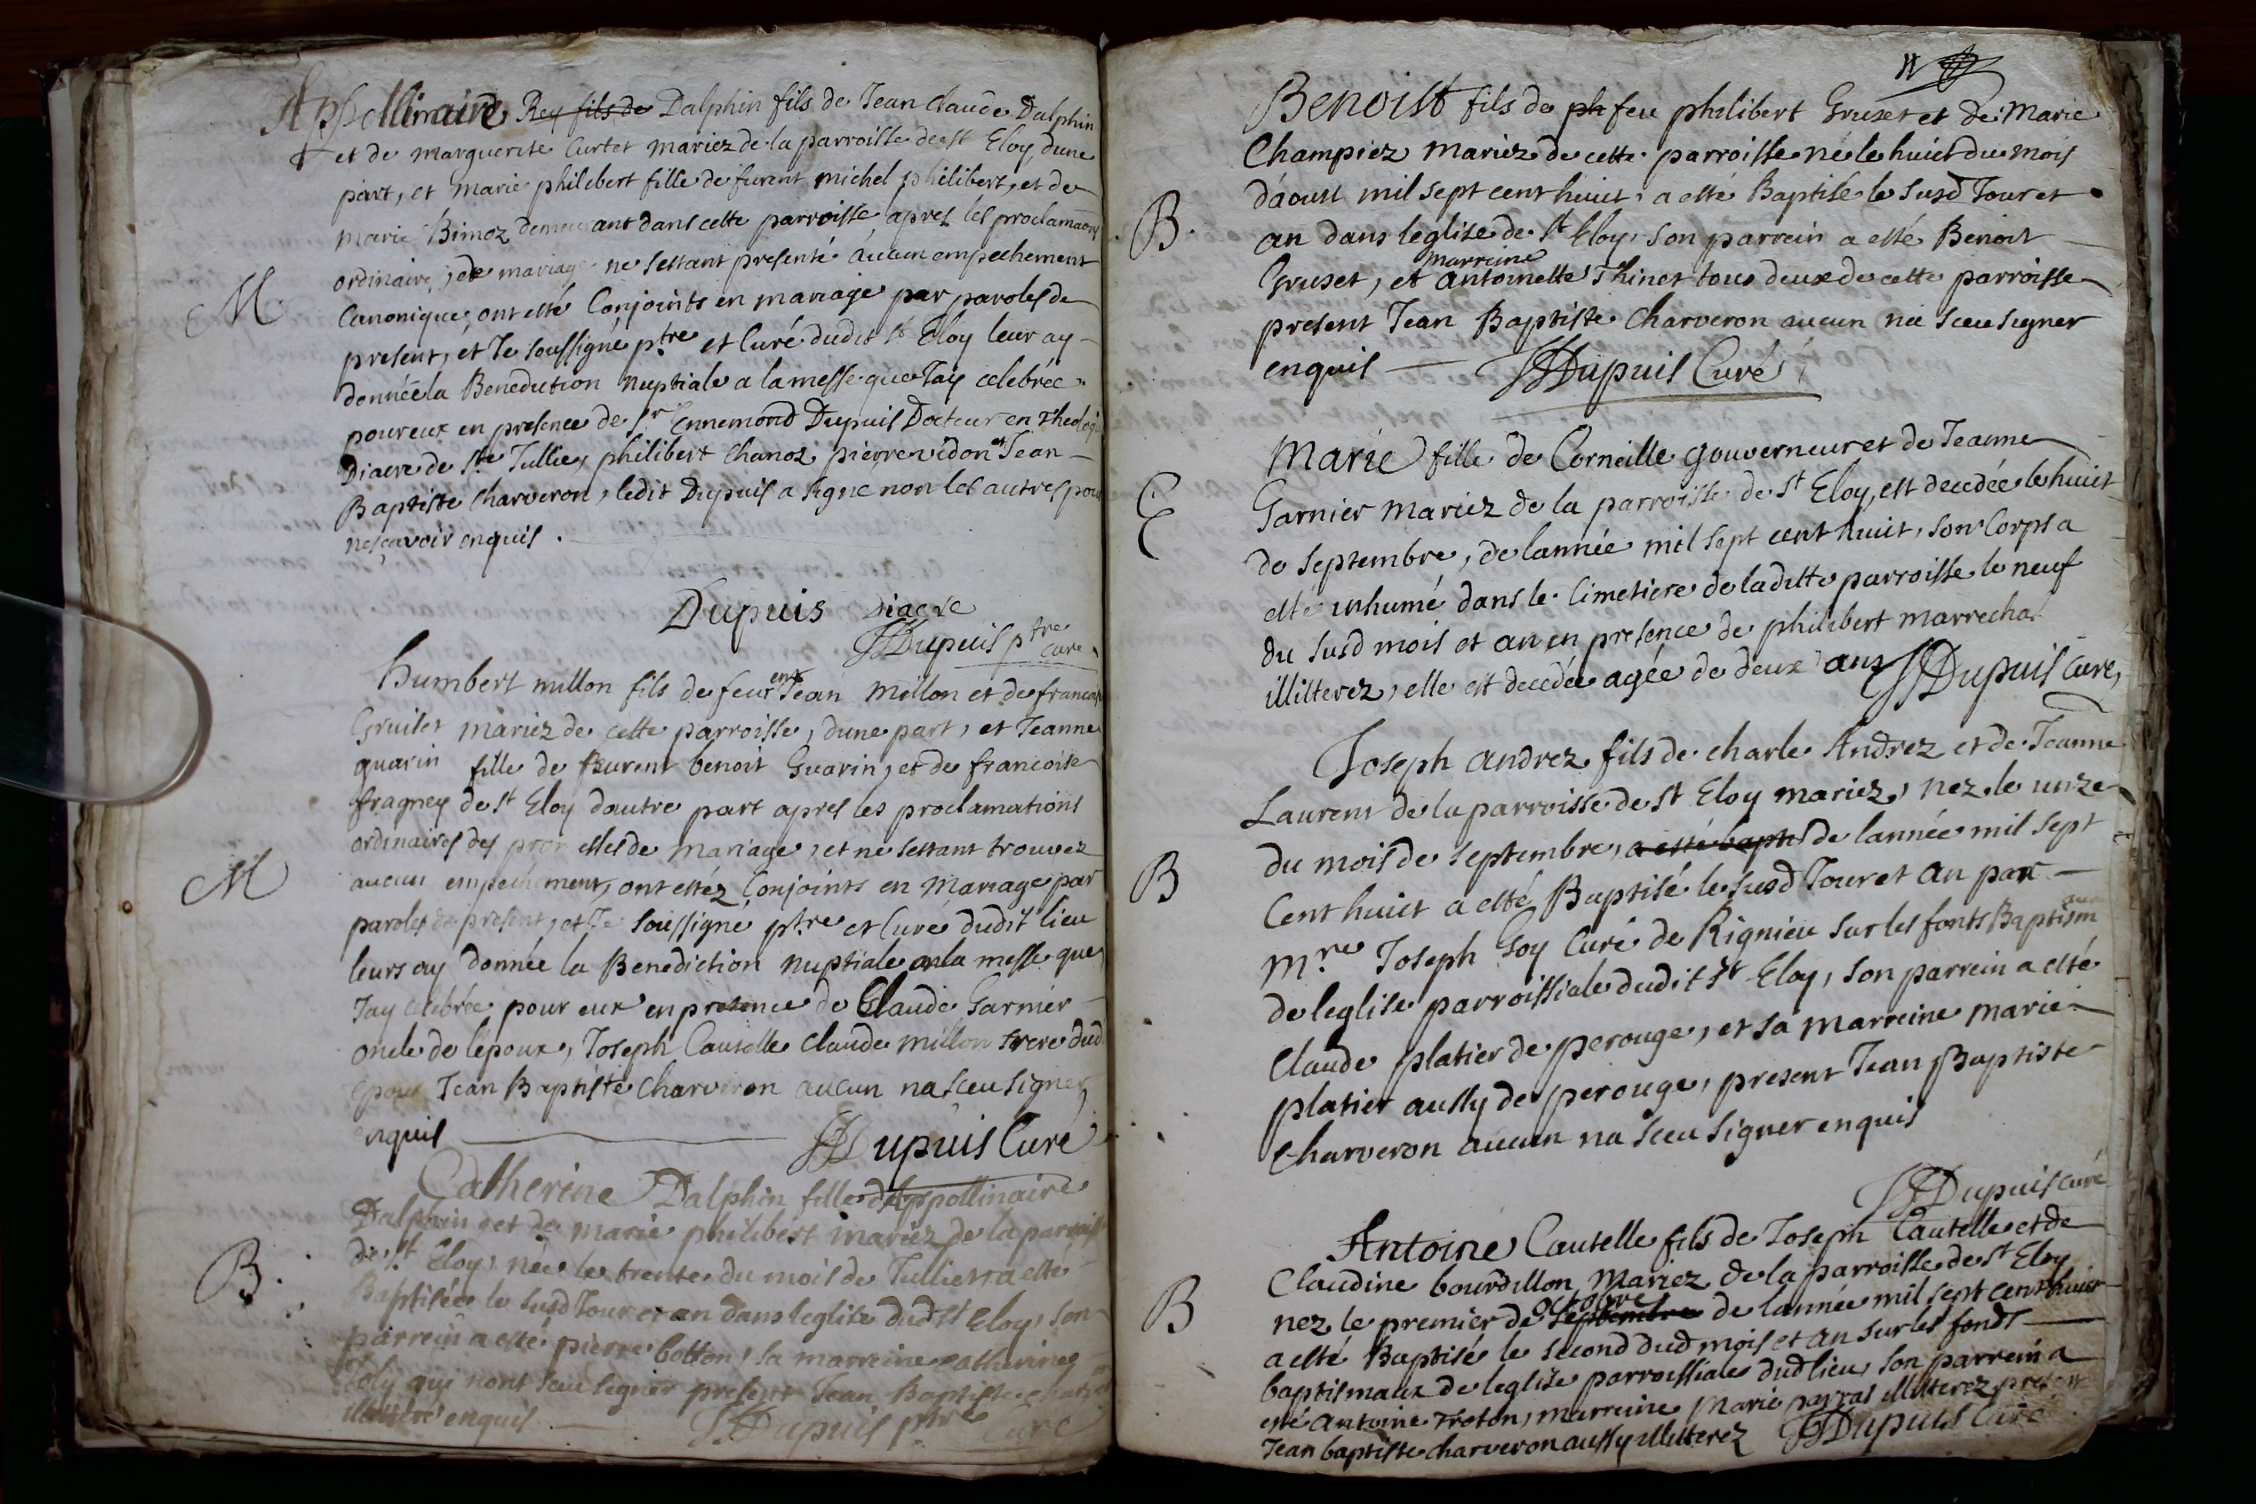 Appollinaire Rey fils de Dalphin fils de Jean Claude Dalphin
et de marguerite Curtet mariez de la parroisse de st Eloy, dune
part, et marie philibert fille de furent michel philibert, et de
marie Bimoz demeurant dans cette parroisse apres les proclamaons
ordinaires, de mariage ne sestant presenté aucun empechement
M
Canonique, ont esté Conjoints en mariage par paroles de
present, et Je soussigné ptre et Curé dudit st Eloy leur ay
donnée la Benediction nuptiale a la messe que Jay celebrée
pour eux en presence de sr Ennemond Dupuis Docteur en Theologie
Diacre de ste Jullie, philibert Chanoz pierre vidon et Jean
Baptiste Charveron, ledit Dupuis a signe non les autres pour
ne sçavoir enquis.
Dupuis Diacre
JDupuis ptre
Curé
Humbert millon fils de feurent Jean Millon et de francoise
Gruilet mariez de cette parroisse, dune part, et Jeanne
guarin fille de feurent benoit Guarin, et de francoise
fragney de st Eloy dautre part apres les proclamations
ordinaires des promesses de mariage, et ne sestant trouvez
M
aucun empechement, ont estéz Conjoints en Mariage par
paroles de present, et Je soussigné ptre et Curé dudit lieu
leurs ay donnée la Benediction nuptiale a la messe que
Jay celebrée pour eux en presence de Claude Garnier
oncle de lepoux, Joseph Cautelle Claude millon frere dud
epoux Jean Baptiste Charveron aucun na sceu signer
enquis JDupuis Curé
Catherine Dalphin fille dAppollinaire
Dalphin et de marie philibert mariez de la parroisse
B.
de st Eloy, née le trente du mois de Jullier a esté
Baptisée le susd Jour et an dans leglise dud st Eloy, son
parrein a esté pierre botton, sa marreine catherine
Joly qui nont sceu signer present Jean Baptiste Charveron
illiteré enquis JDupuis ptre Curé
11
Benoist fils de ph feu philibert Gruzet et de Marie
Champiez mariez de cette parroisse né le huict du mois
daoust mil sept cent huict, a esté Baptisé le susd Jour et
B.
an dans leglise de st Eloy, son parrein a esté Benoit
Gruzet, et marreine antoinette Thinet tous deux de cette parroisse
present Jean Baptiste Charveron aucun na sceu signer
enquis JDupuis Curé
Marie fille de Corneille gouverneur et de Jeanne
E
Garnier mariez de la parroisse de st Eloy, est decedée le huict
de septembre, de lannée mil sept cent huit, son Corps a
esté inhumé dans le Cimetiere de laditte parroisse le neuf
du susd mois et an en presence de philibert marrechal
illitterez, elle est decedée agée de deux ans JDupuis Curé,
Joseph andrez fils de charle Andrez et de Jeanne
Laurent de la parroisse de st Eloy mariez, nez le unze
du mois de septembre, a esté baptisé de lannée mil sept
B
Cent huict a esté Baptisé le susd Jour et an par
mre Joseph Goy Curé de Rignieu sur les fonts Baptismaux
de leglise parroissiale dudit st Eloy, son parrein a esté
Claude platier de perouge, et sa marreine marie
platier aussy de perouge, present Jean Baptiste
Charveron aucun na sceu signer enquis
JDupuis Curé
Antoine Cautelle fils de Joseph Cautelle et de
Claudine bourdillon Mariez de la parroisse de st Eloy
B
nez le premier de septembre octobre de lannée mil sept cent huict
a esté Baptisé le second dud mois et an sur les fonds
baptismaux de leglise parroissiale dud lieu, son parrein a
esté antoine Treton, marreine Marie parras illitterez present
Jean baptiste charveron aussy illitterez JDupuis Curé